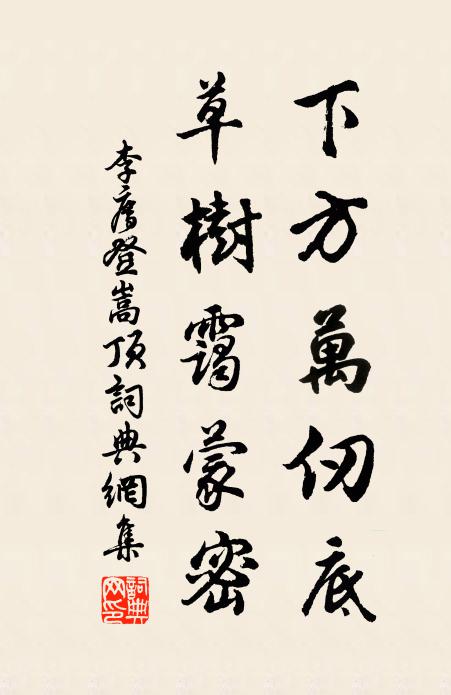 下方萬仞底
草樹靄蒙密
李廌登嵩頂詞典網集
詞典網印